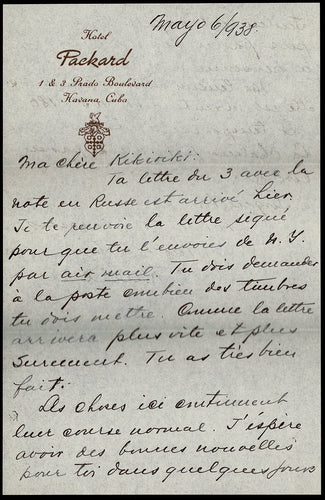 Mayo 6/938
Hotel
Packard
1 & 3 Prado Boulevard
Havana, Cuba
Ma chère Kikiriki:
Ta lettre du 3 avec la
note en Russe est arrivé hier.
Je te renvoie la lettre signé
pour que tu l'envoies de N.Y.
par air mail. Tu dois demander
à la poste combien des timbres
tu dois mettre. Comme la lettre
arrivera plus vite et plus
surement. Tu as très bien
fait.
Les choses ici continuent
leur course normal. J'espère
avoir des bonnes nouvelles
pour toi dans quelques jours